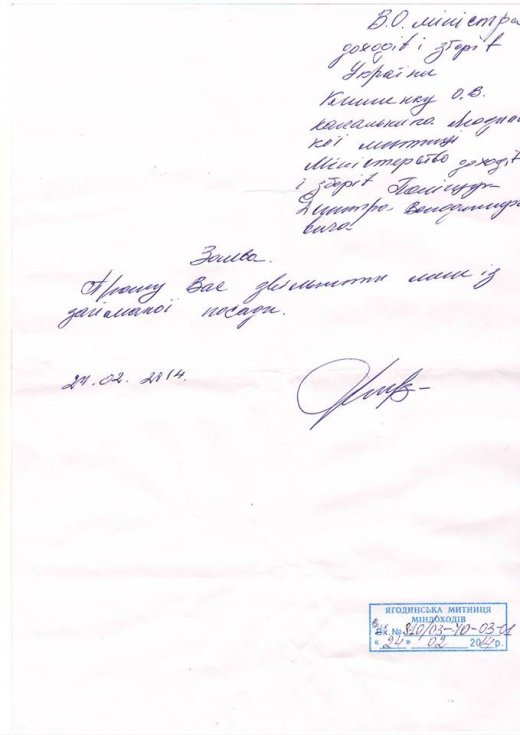 В.О. міністра
доходів і зборів
України
Клименку О.В.
начальника Ягодинсь
кої митниці
Міністерства доходів
і зборів Поліщук
Дмитра Володимиро
вича
Заява.
Прошу Вас звільнити мене із
займаної посади.
24.02.2014.
ЯГОДИНСЬКА МИТНИЦЯ
МІНДОХОДІВ
Вх.№ 810/03-70-03-01
"24" 02 2014р.